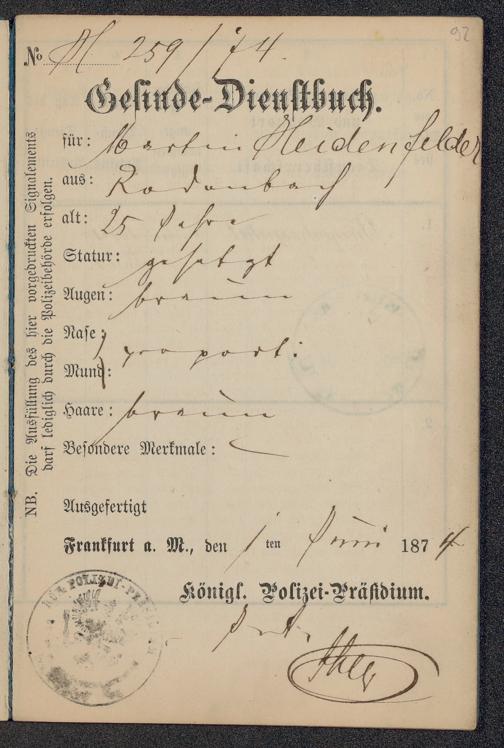 92
No H 259/74.
Gesinde-Dienstbuch.
für: Martin Heidenfelder
aus: Rodenbach
alt: 25 Jahre
Statur: gesetzt
Augen: braun
Nase:
Mund: proport:
Haare: braun
Besondere Merkmale: –
Ausgefertigt
Frankfurt a. M., den 1 ten Juni 1874
Königl. Polizei-Präsidium.
NB. Die Ausfüllung des hier vorgedruckten Signalements
darf lediglich durch die Polizeibehörde erfolgen.
POLIZEI-PRÄ